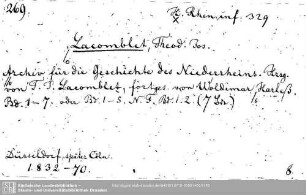 269.
H. Rhen. inf. 329
Lacomblet, Theod. Jos.
Archiv für die Geschichte des Niederrheins. Hrsg.
von T. J. Lacomblet, fortges. von Woldemar Harleß.
Bd. 1-7. oder Bd. 1-5. N. F. Bd. 1.2 (7 Bde)
Düsseldorf, später Cöln.
1832-70.
8.